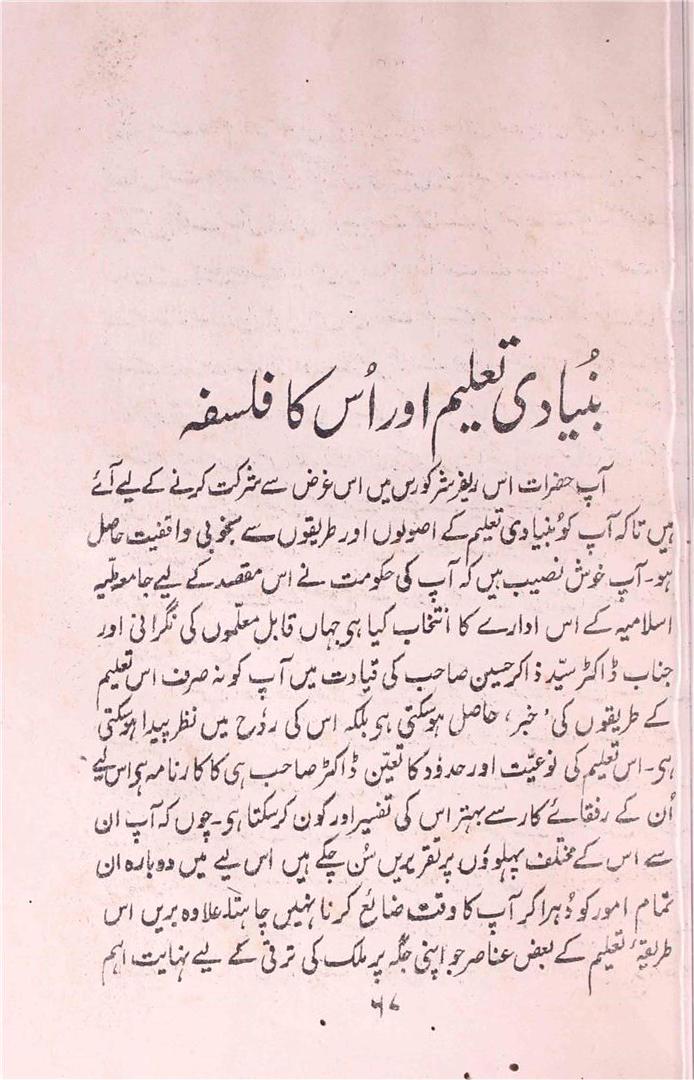 بُنیادی تعلیم اور اُس کا فلسفہ
آپ حضرات اس ریفریشر کورس میں اس غرض سے شرکت کرنے کے لیے آئے
ہیں تاکہ آپ کو بُنیادی تعلیم کے اصولوں اور طریقوں سے بخوبی واقفیت حاصل
ہو۔ آپ خوش نصیب ہیں کہ آپ کی حکومت نے اس مقصد کے لیے جامعہ ملّیہ
اسلامیہ کے اس ادارے کا انتخاب کیا ہی جہاں قابل معلّموں کی نگرانی اور
جناب ڈاکٹر سیّد ذاکر حسین صاحب کی قیادت میں آپ کو نہ صرف اس تعلیم
کے طریقوں کی 'خبر' حاصل ہوسکتی ہی بلکہ اس کی رُوح میں نظر پیدا ہوسکتی
ہی۔ اس تعلیم کی نوعیّت اور حدود کا تعیّن ڈاکٹر صاحب ہی کا کارنامہ ہی اس لیے
اُن کے رفقائے کار سے بہتر اس کی تفسیر اور کون کرسکتا ہی۔ چوں کہ آپ ان
سے اس کے مختلف پہلوؤں پر تقریریں سُن چکے ہیں اس لیے میں دوبارہ ان
تمام امور کو دُہرا کر آپ کا وقت ضائع کرنا نہیں چاہتا۔ علاوہ بریں اس
طریقۂ تعلیم کے بعض عناصر جو اپنی جگہ پر ملک کی ترقی کے لیے نہایت اہم
۶۷